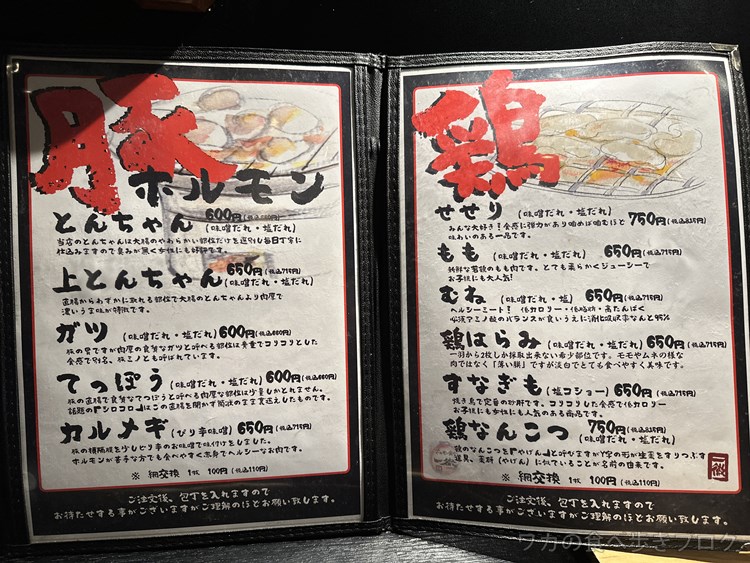 豚
ホルモン
とんちゃん (味噌だれ・塩だれ) 600円(税込660円)
当店のとんちゃんは大腸のやわらかい部位だけを選別し毎日丁寧に
仕込みますので臭みが無く女性にも好評です。
上とんちゃん (味噌だれ・塩だれ) 650円(税込715円)
直腸からわずかに取れる部位で大腸のとんちゃんより肉厚で
濃いうま味が特徴です。
ガツ (味噌だれ・塩だれ) 600円(税込660円)
豚の胃ですが肉厚の良質なガツと呼べる部位は希少でコリコリとした
食感で別名、豚ミノとも呼ばれています。
てっぽう (味噌だれ・塩だれ) 600円(税込660円)
豚の直腸で良質なてっぽうと呼べる肉厚な部位は少量しかとれません。
話題の『シロコロ』はこの直腸を開かず筒状のまま裏返したものです。
カルメギ (ぴり辛味噌) 650円(税込715円)
豚の横隔膜を少しピリ辛のお味噌で味付けをしました。
ホルモンが苦手な方でも食べやすく赤身でヘルシーなお肉です。
※ 網交換 1枚 100円(税込110円)
ご注文後、包丁を入れますので
お待たせする事がございますがご理解のほどお願い致します。
鶏
せせり (味噌だれ・塩だれ) 750円(税込825円)
みんな大好き!食感に弾力があり噛めば噛むほど
味わいのある一品です。
もも (味噌だれ・塩だれ) 650円(税込715円)
新鮮な若鶏のもも肉です。とても柔らかくジューシーで
お子様にも大人気!
むね (味噌だれ・塩) 650円(税込715円)
ヘルシーミート! 低カロリー・低脂肪・高たんぱく
必須アミノ酸のバランスが良いうえに消化吸収率なんと95%
鶏はらみ (味噌だれ・塩だれ) 650円(税込715円)
一羽から2枚しか採取出来ない希少部位です。モモやムネの様な
肉ではなく「薄い膜」ですが淡白でとても食べやすく美味です。
すなぎも (塩コショー) 650円(税込715円)
焼き鳥で定番の砂肝です。コリコリした食感で低カロリー
お子様にも女性にも人気のある商品です。
鶏なんこつ (味噌だれ・塩だれ) 750円(税込825円)
胸のなんこつを『やげん』と呼びますがY字の形が生薬をすりつぶす
道具、薬研(やげん)に似ていることが名前の由来です。
※ 網交換 1枚 100円(税込110円)
ご注文後、包丁を入れますので
お待たせする事がございますがご理解のほどお願い致します。
ワカの食べ歩きブログ